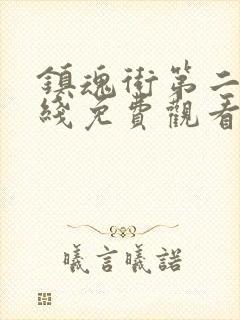 鎮魂街第二
綫免費觀看
曦言曦諾